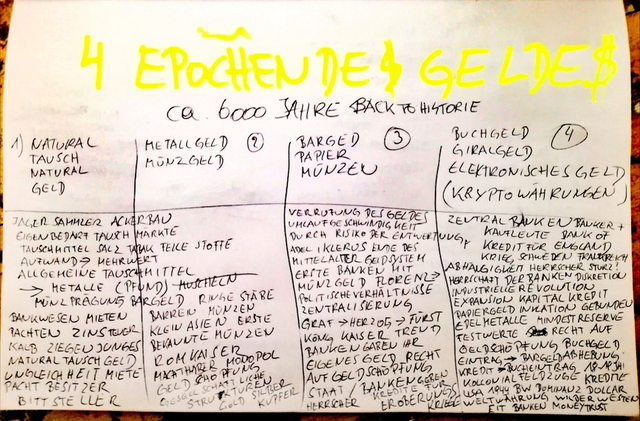 4 EPOCHEN DE$ GELDE$
ca. 6000 JAHRE BACK TO HISTORIE
1) NATURAL
TAUSCH
NATURAL
GELD
METALLGELD ②
MÜNZGELD
BARGED ③
PAPIER
MÜNZEN
BUCHGELD ④
GIRALGELD
ELEKTRONISCHES GELD
(KRYPTOWÄHRUNGEN)
JÄGER SAMMLER ACKERBAU
EIGENBEDART TAUSCH MÄRKTE
TAUSCHMITTEL SALZ TABAK TEILE STOFFE
AUFWAND → MEHRWERT
ALLGEMEINE TAUSCHMITTEL
→ METALLE (PFUND) MUSCHELN
MÜNZPRÄGUNG BARGELD RINGE STÄBE
BANKWESEN MIETEN BARREN MÜNZEN
PACHTEN ZINSTEUER KLEIN ASIEN ERSTE
KALB ZIEGEN JUNGES BEKANNTE MÜNZEN
NATURAL TAUSCH GELD ROM KAISER
UNGLEICHHEIT MIETE MACHTHABER MONOPOL
PACHT BESITZER GELD SCHÖPFUNG
BITTSTELLER GESELLSCHAFTLICHE
STRUKTUREN
GOLD SILBER
KUPFER
VERRUFUNG DES GELDES
UMLAUFGESCHWINDIGKEIT
DURCH RISIKO DER ENTWERTUNG
ADEL KLERUS ENDE DES
MITTELALTER GELDSYSTEM
ERSTE BANKEN MIT
MÜNZGELD FLORENZ →
POLITISCHE VERHÄLTNISSE
ZENTRALISIERUNG
GRAF → HERZOG → FÜRST
KÖNIG KAISER TREND
BANKEN GABEN IHR
EIGENES GELD RECHT
AUF GELDSCHÖPFUNG
STAAT / BANKEN GEBEN
HERRSCHER KREDITE FÜR
EROBERUNGS
KRIEGE
ZENTRAL BANKEN BANKER +
KAUFLEUTE BANK OF
KREDIT FÜR ENGLAND
KRIEG SCHWEDEN FRANKREICH
ABHÄLGIGKEIT HERRSCHER STURZ!
HERRSCHAFT DER BANKEN DIKRETION
INDUSTRIELLE REVOLUTION
EXPANSION KAPITAL KREDIT
PAPIERGELD IN KATION GEBUNDEN
EDELMETALLE MINDESTRESERVE
FESTWERTE RECHT AUF
GELDSCHÖPFUNG BUCHGELD
EINTRAG → BARGELD ABHEBUNG
KREDIT → BUCHEINTRAG
KOLONIAL FELDZÜGE KREDITE
USA 1944 BW DOMINANZ DOLLAR
WELTWÄHRUNG WILDER WESTEN
EIT BANKEN MONEYTRUST